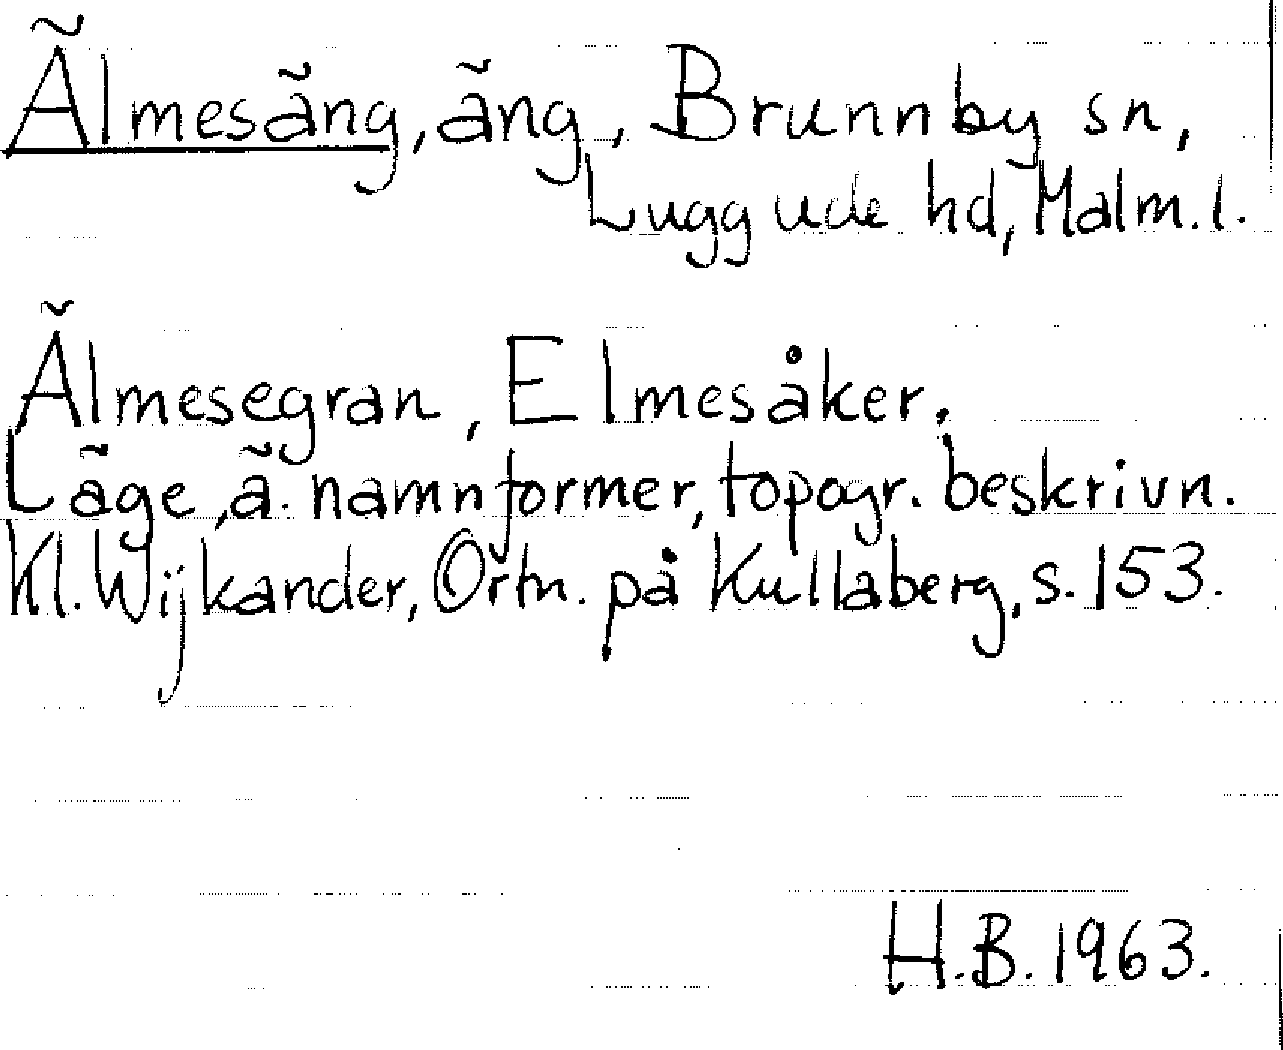 Älmesäng, äng, Brunnby sn,
Luggude hd, Malm.l.
Älmesegran, Elmesåker.
Läge, ä. namnformer, topogr. beskrivn.
Kl. Wijkander, Ortn. på Kullaberg, s. 153.
H.B. 1963.